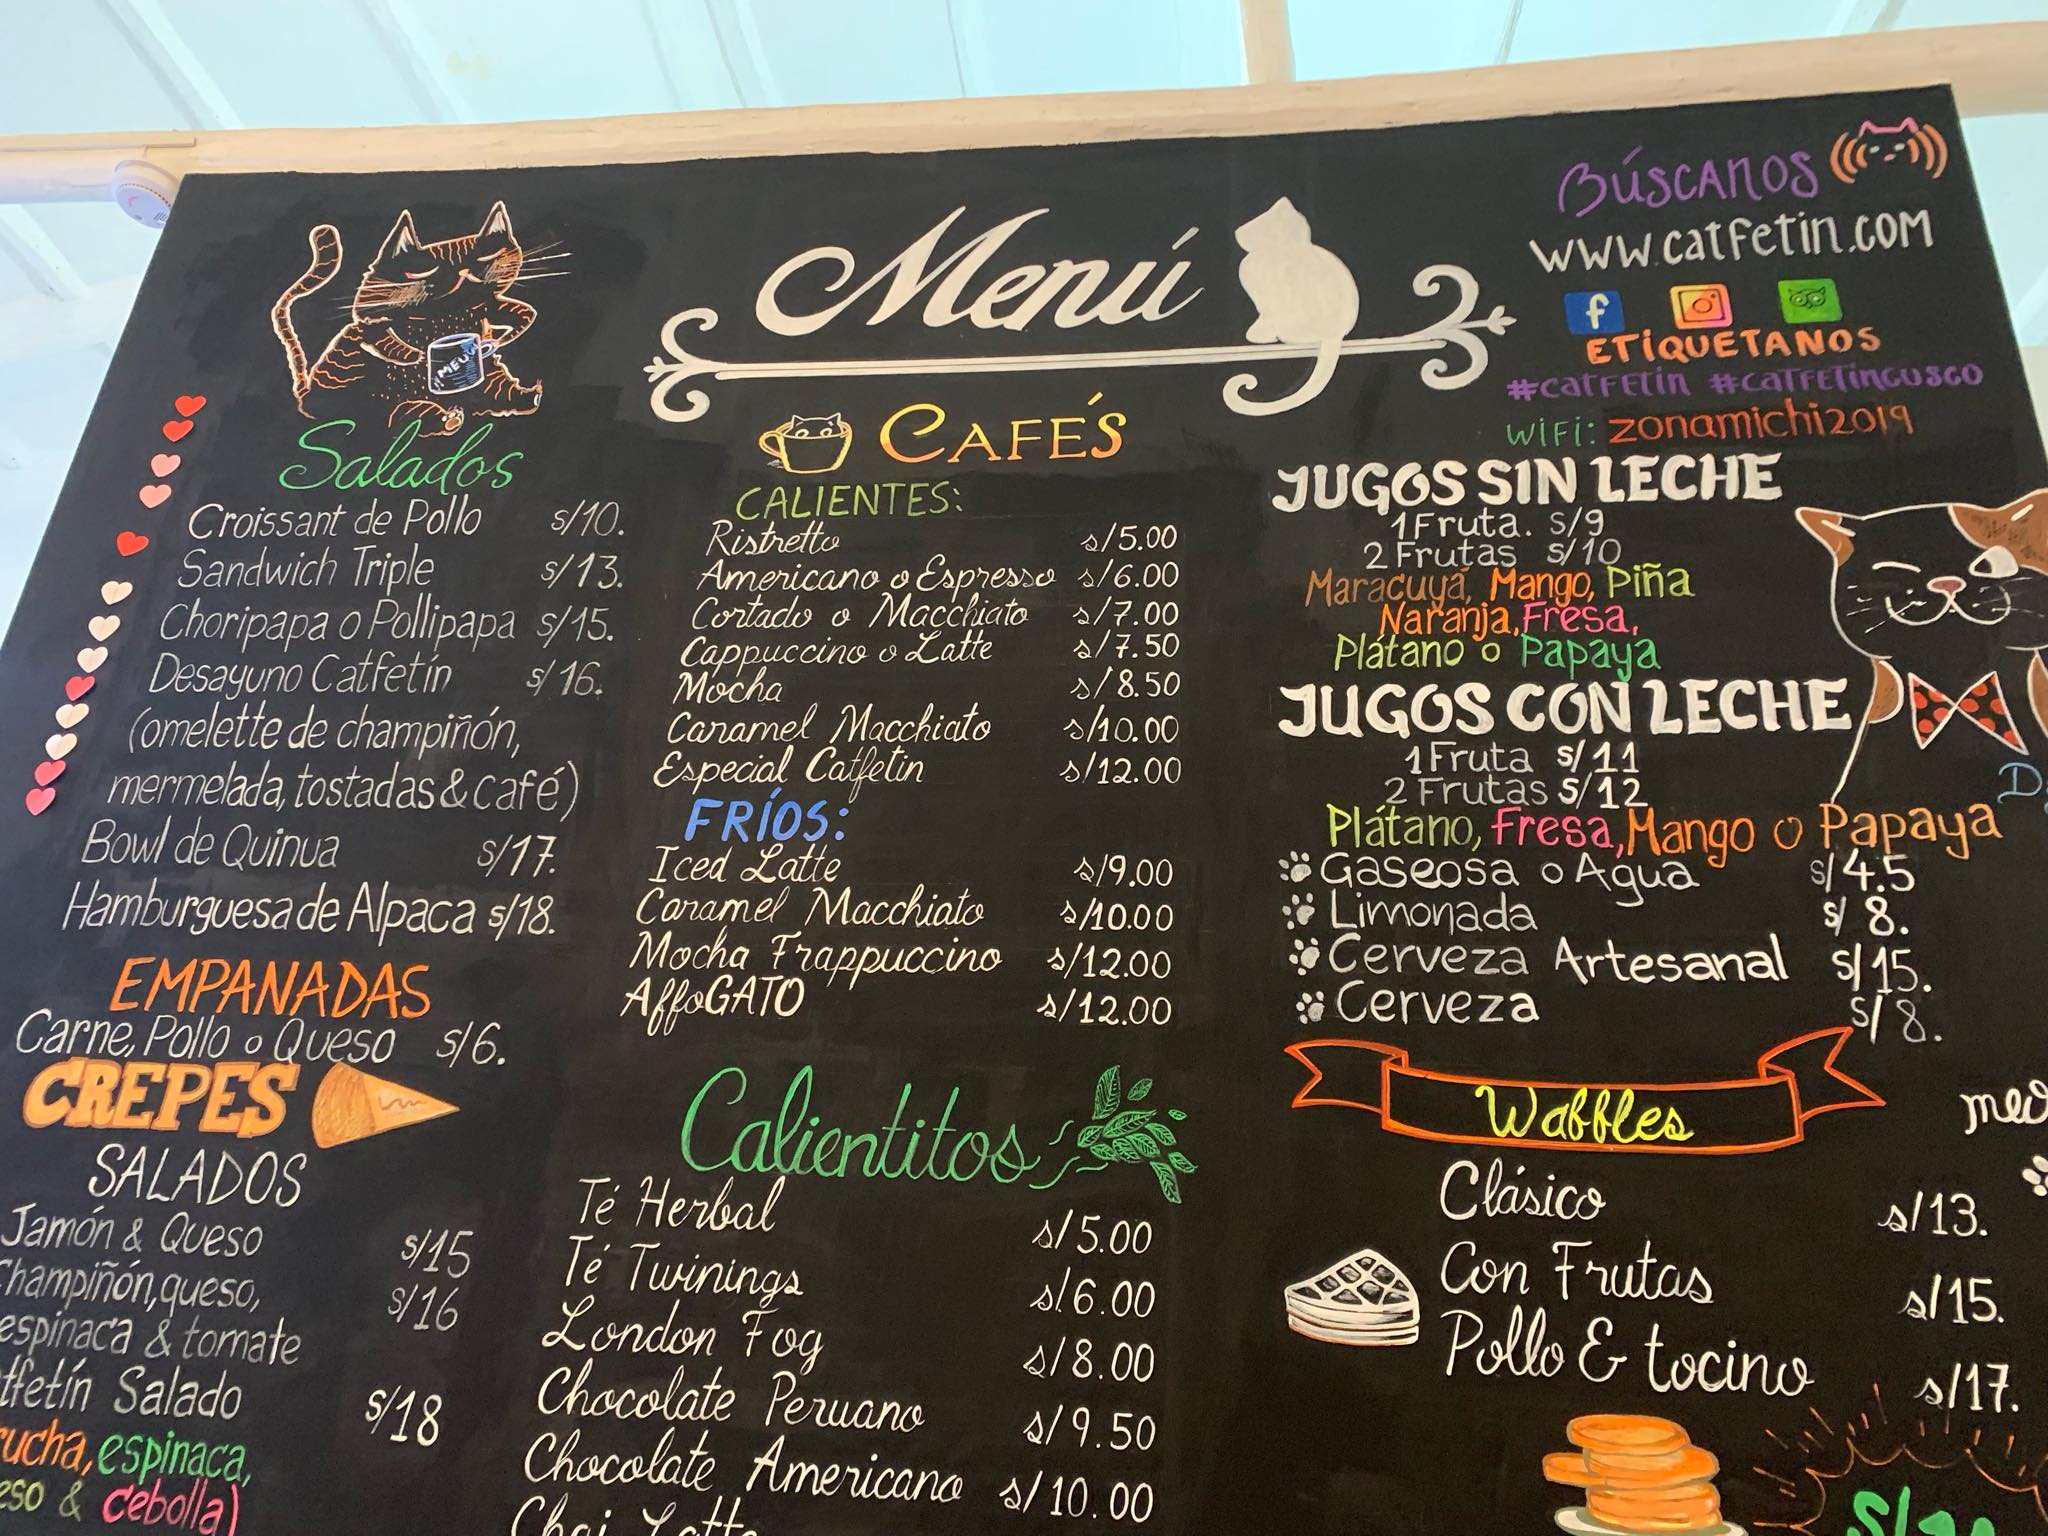 Menú
MEUW
Salados
Croissant de Pollo s/10.
Sandwich Triple s/13.
Choripapa o Pollipapa s/15.
Desayuno Catfetín s/16.
(omelette de champiñón,
mermelada, tostadas & café)
Bowl de Quinua s/17.
Hamburguesa de Alpaca s/18.
EMPANADAS
Carne, Pollo o Queso s/6.
CREPES
SALADOS
Jamón & Queso s/15
Champiñón, queso, s/16
espinaca & tomate
Salado s/18
espinaca,
& cebolla)
CAFÉS
CALIENTES:
Ristretto s/5.00
Americano o Espresso s/6.00
Cortado o Macchiato s/7.00
Cappuccino o Latte s/7.50
Mocha s/8.50
Caramel Macchiato s/10.00
Especial Catfetin s/12.00
FRÍOS:
Iced Latte s/9.00
Caramel Macchiato s/10.00
Mocha Frappuccino s/12.00
AffoGATO s/12.00
Calientitos
Té Herbal s/5.00
Té Twinings s/6.00
London Fog s/8.00
Chocolate Peruano s/9.50
Chocolate Americano s/10.00
Chai Latte
BÚSCANOS
www.catfetin.com
f
ETIQUÉTANOS
#catfetin #catfetincusco
WIFI: zonamichi2019
JUGOS SIN LECHE
1 Fruta. s/9
2 Frutas s/10
Maracuyá, Mango, Piña
Naranja, Fresa,
Plátano o Papaya
JUGOS CON LECHE
1 Fruta s/11
2 Frutas s/12
Plátano, Fresa, Mango o Papaya
Gaseosa o Agua s/4.5
Limonada s/8.
Cerveza Artesanal s/15.
Cerveza s/8.
Waffles
Clásico s/13.
Con Frutas s/15.
Pollo & tocino s/17.